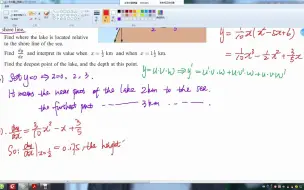 shore line.
Find where the lake is located relative
to the shore line of the sea.
Find dy/dx and interpret its value when x = 1/2 km and when x = 1 1/2 km.
Find the deepest point of the lake, and the depth at this point.
y = 1/10 x(x² - 5x + 6)
= 1/10 x³ - 1/2 x² + 3/5 x
Set y = 0 ⇒ x = 0, 2, 3.
y = u·v·w ⇒ y' = u'·v·w + u·v'·w + u·v·w'
It means the near part of the lake 2km to the sea.
the furthest point 3km
dy/dx = 3/10 x² - x + 3/5
So: dy/dx |x=1/2 = 0.175, the height